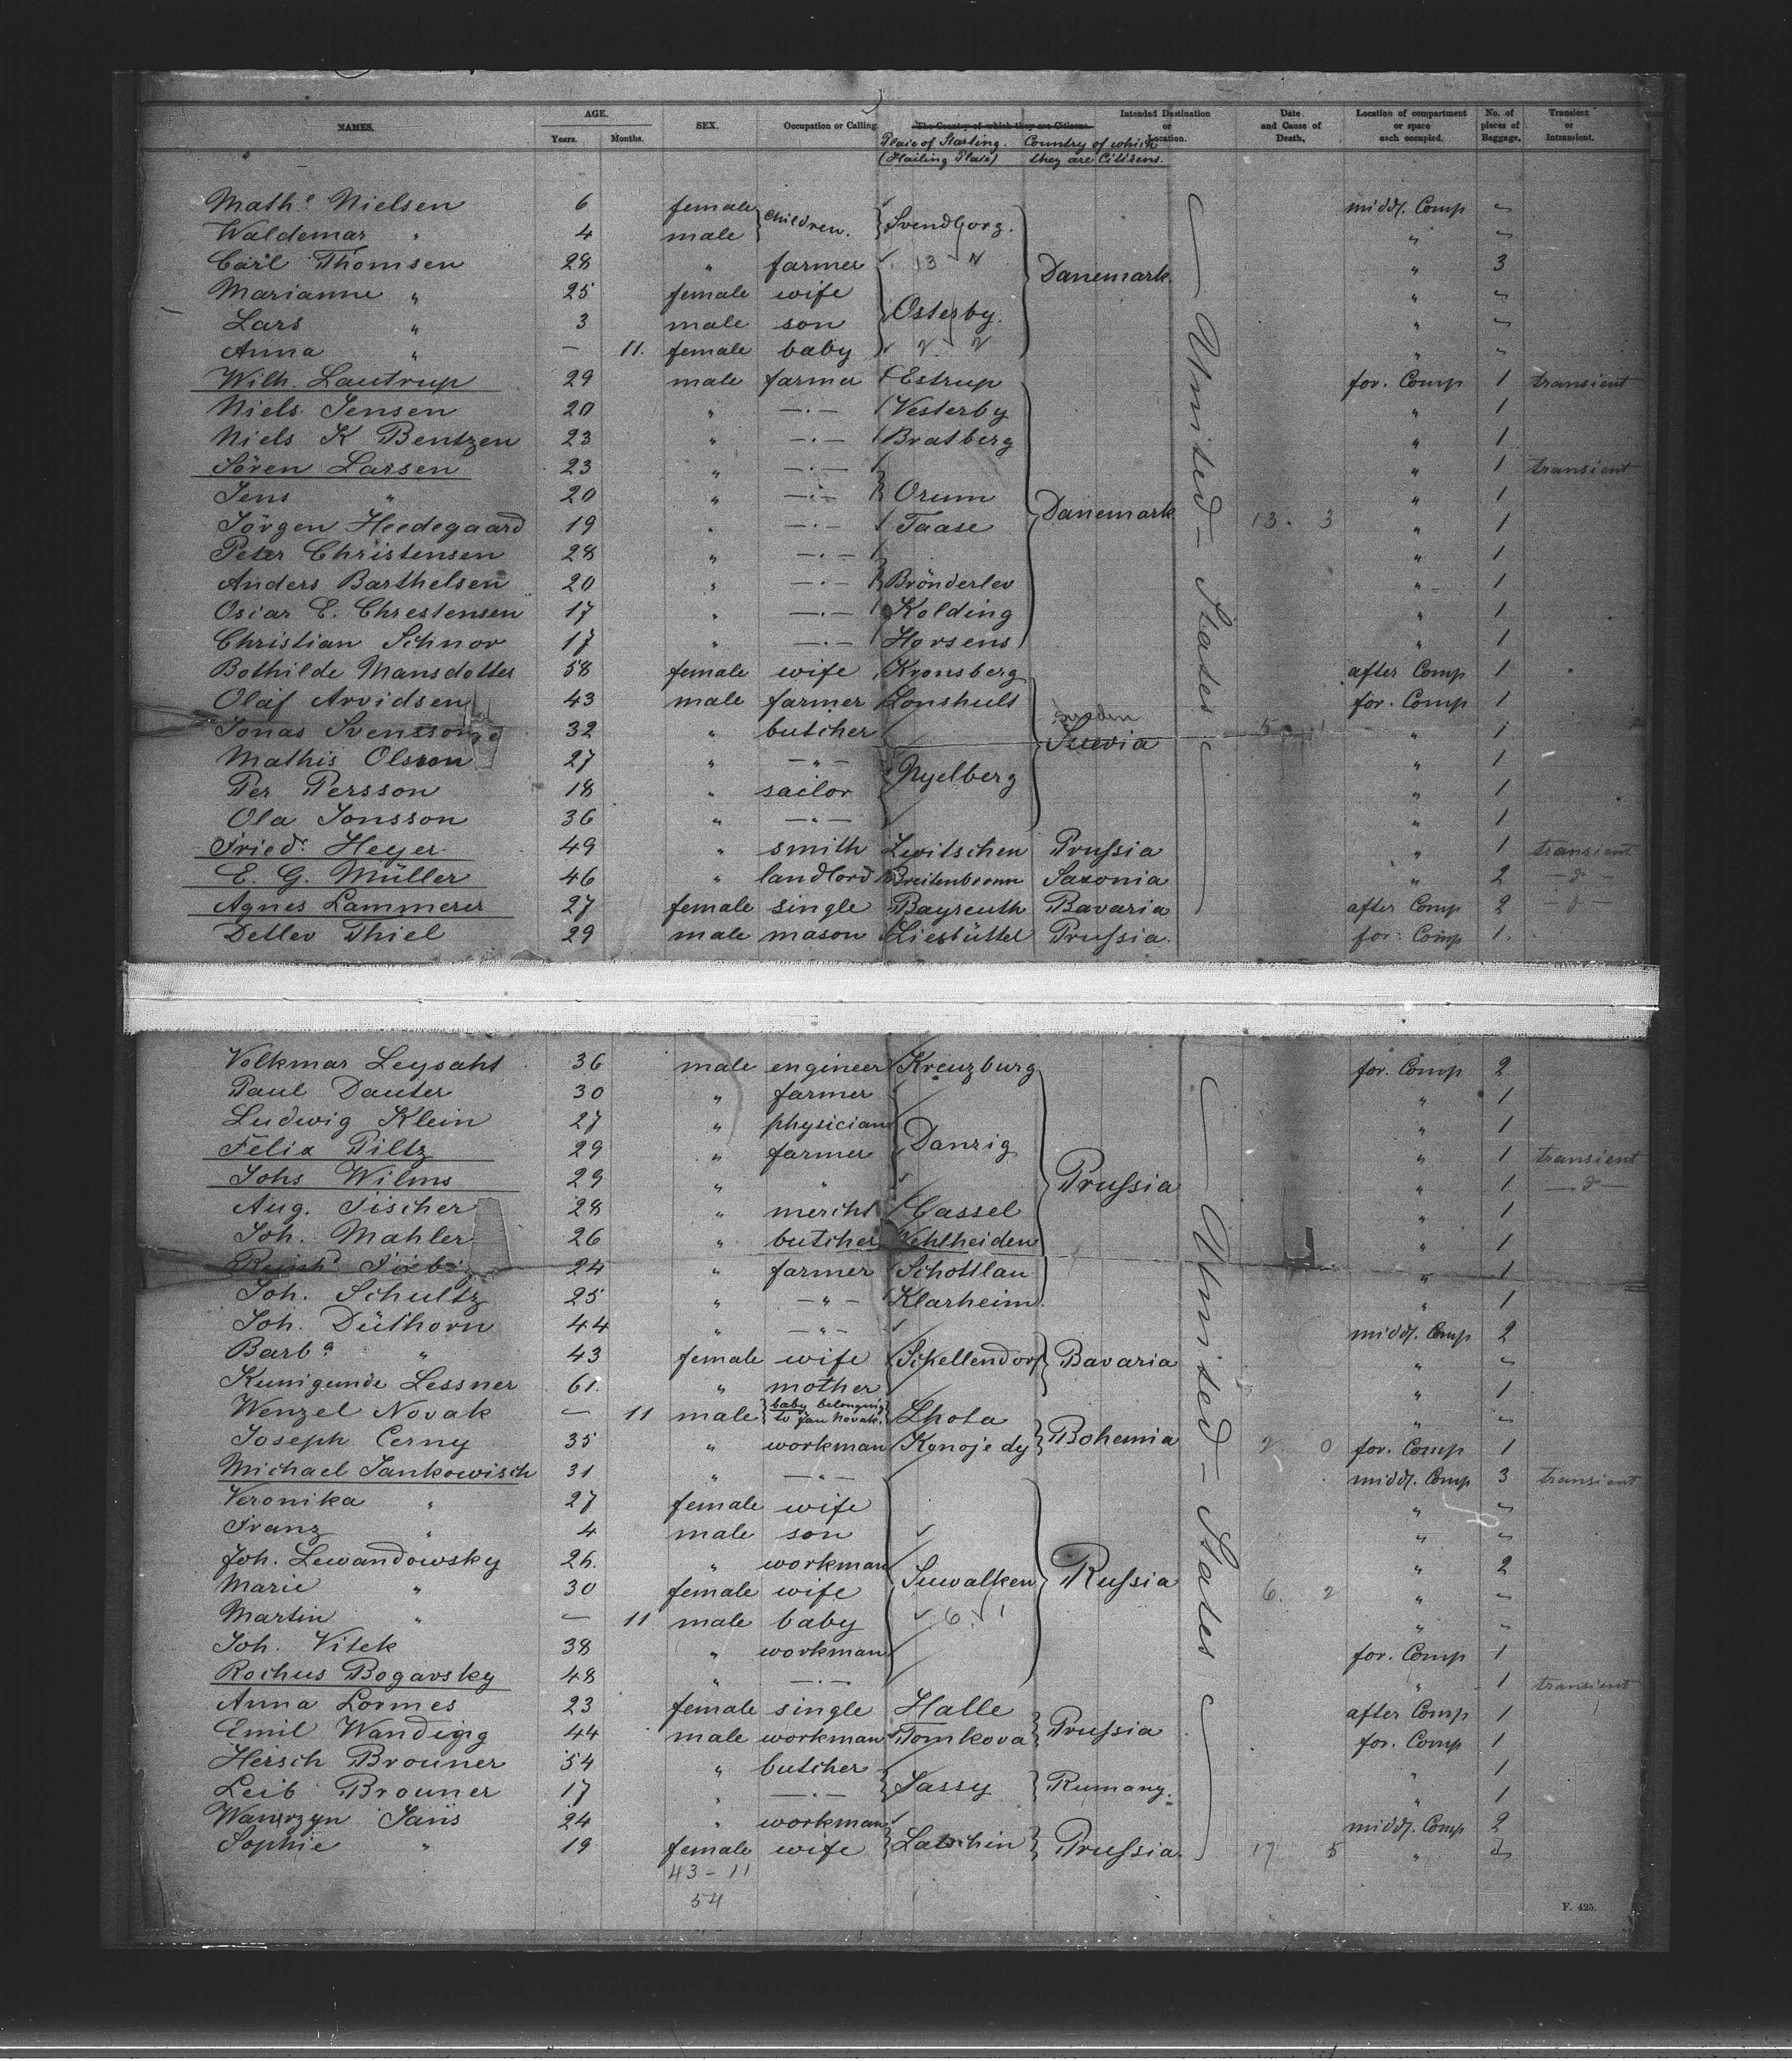 NAMES. AGE. Years. Months. SEX. Occupation or Calling. The Country of which they are Citizens. Intended Destination or Location. Date and Cause of Death. Location of compartment or space each occupied. No. of pieces of Baggage. Transient or Intransient.
Place of Starting. (Hailing Place) Country of which they are Citizens.
Math.ᵉ Nielsen 6 female } children. } Svendborg. midd. Comp "
Waldemar " 4 male " "
Carl Thomsen 28 " farmer 13 " Danemark " 3
Marianne " 25 female wife " "
Lars " 3 male son Osterby. " "
Anna " — 11. female baby 2 " " "
Wilh. Lautrup 29 male farmer Estrup for. Comp 1 transient
Niels Jensen 20 " —"— Vesterby " 1
Niels K Bentzen 23 " —"— Bratberg " 1
Sören Larsen 23 " —"— " 1 transient
Jens " 20 " —"— Orum " 1
Jörgen Heedegaard 19 " —"— Taase Danemark 13. 3 " 1
Peter Christensen 28 " —"— " 1
Anders Barthelsen 20 " —"— Brönderlev " 1
Oscar E. Chrestensen 17 " —"— Kolding " 1
Christian Schnor 17 " —"— Horsens " 1
Bothilde Mansdotter 58 female wife Kronsberg after Comp 1
Olaf Arvidsen 43 male farmer Lonshult for. Comp 1
Jonas Svensson 32 " butcher Sweden Suevia 5 1 " 1
Mathis Olsson 27 " —"— Nyelberg " 1
Per Persson 18 " sailor " 1
Ola Jonsson 36 " —"— " 1
Fried. Heyer 49 " smith Zwitschen Prussia " 1 transient
E. G. Müller 46 " landlord Breitenbrunn Saxonia " 2 —d—
Agnes Lammerer 27 female single Bayreuth Bavaria after Comp 2 —d—
Detlev Thiel 29 male mason Liesbüttel Prussia. for. Comp 1.
United - States
Volkmar Leysaht 36 male engineer Kreuzburg for. Comp 2
Paul Dauter 30 " farmer " 1
Ludwig Klein 27 " physician Danzig " 1
Felix Piltz 29 " farmer " 1 transient
Johs Wilms 29 " " Prussia " 1 —d—
Aug. Fischer 28 " mercht Cassel " 1
Joh. Mahler 26 " butcher Wehlheiden " 1
24 " farmer Schottlau " 1
Joh. Schultz 25 " —"— Klarheim " 1
Joh. Düthorn 44 " —"— midd. Comp 2
Barbª " 43 female wife Schellendorf Bavaria " "
Kunigunde Lessner 61. " mother " 1
Wenzel Novak — 11 male baby belonging to Jan Novak. Lhota " "
Joseph Cerny 35 " workman Konojedy Bohemia 2 0 for. Comp 1
Michael Jankowisch 31 " —"— midd. Comp 3 transient
Veronika " 27 female wife " "
Franz " 4 male son " "
Joh. Lewandowsky 26. " workman " 2
Marie " 30 female wife Suwalken Russia 6. 2 " "
Martin " — 11 male baby 6 1 " "
Joh. Vitek 38 " workman for. Comp 1
Rochus Bogavsky 48 " —"— " 1 transient
Anna Lormes 23 female single Halle after Comp 1
Emil Wandigg 44 male workman Tomkova Prussia for. Comp 1
Hersch Brouner 54 " butcher " 1
Leib Brouner 17 " —"— Jassy Rumany. " 1
Wawrzyn Janis 24 " workman midd. Comp 2
Sophie " 19 female wife Latschin Prussia. 17 5 " "
United - States
43 - 11
54
F. 425.